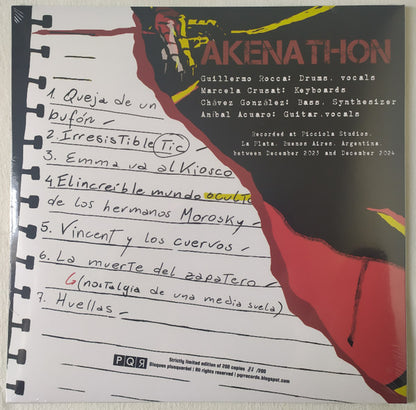 AKENATHON
Guillermo Rocca: Drums, vocals
Marcela Crusat: Keyboards
Chávez González: Bass, Synthesizer
Aníbal Acuaro: Guitar, vocals
Recorded at Picciola Studios.
La Plata, Buenos Aires, Argentina.
between December 2023 and December 2024
1. Queja de un
bufón
2. Irresistible Tic
3. Emma va al Kiosco
4. El increíble mundo oculto
de los hermanos Morosky
5. Vincent y los cuervos
6. La muerte del zapatero
6 (nostalgia de una media suela)
7. Huellas
PQR
Strictly limited edition of 200 copies /200
Disques plusqueréel | All rights reserved | pqrrecords.blogspot.com